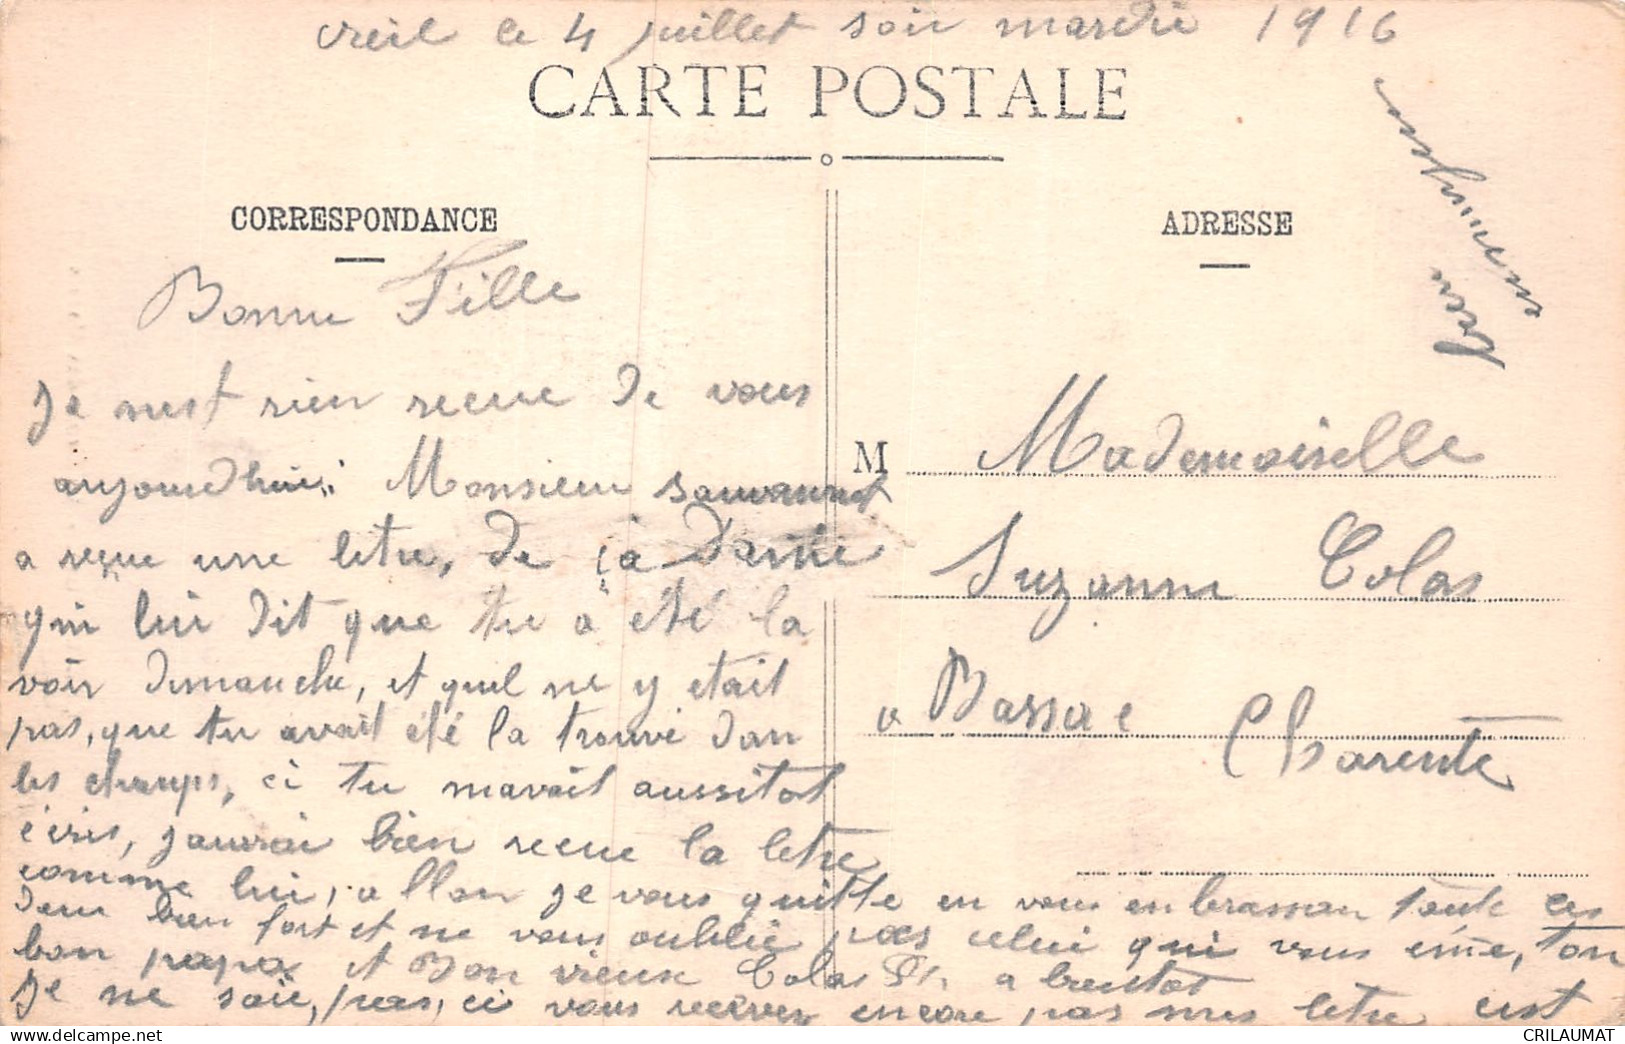 creil le 4 juillet soir mardie 1916
CARTE POSTALE
CORRESPONDANCE
ADRESSE
Bonne Fille
Je nest rien recue de vous
aujourdhui. Monsieur
a reçue une letre, de ça Damie
qui lui dit que tu a été la
voir dimanche, et quil ne y etait
pas, que tu avait été la trouvé dan
les champs, ci tu mavait aussitot
écris, jaurai bien recue la letre
comme lui, allon je vous quitte en vous enbrassan toute ces
deux bien fort et ne vous oublie pas celui qui vous eme, ton
bon papa et Bon vieux Colas A bientot
Je ne saie, pas, ci vous recevez encore pas mes letre est
bien
M Mademoiselle
Suzanne Colas
a Bassac
Charente
CRILAUMAT